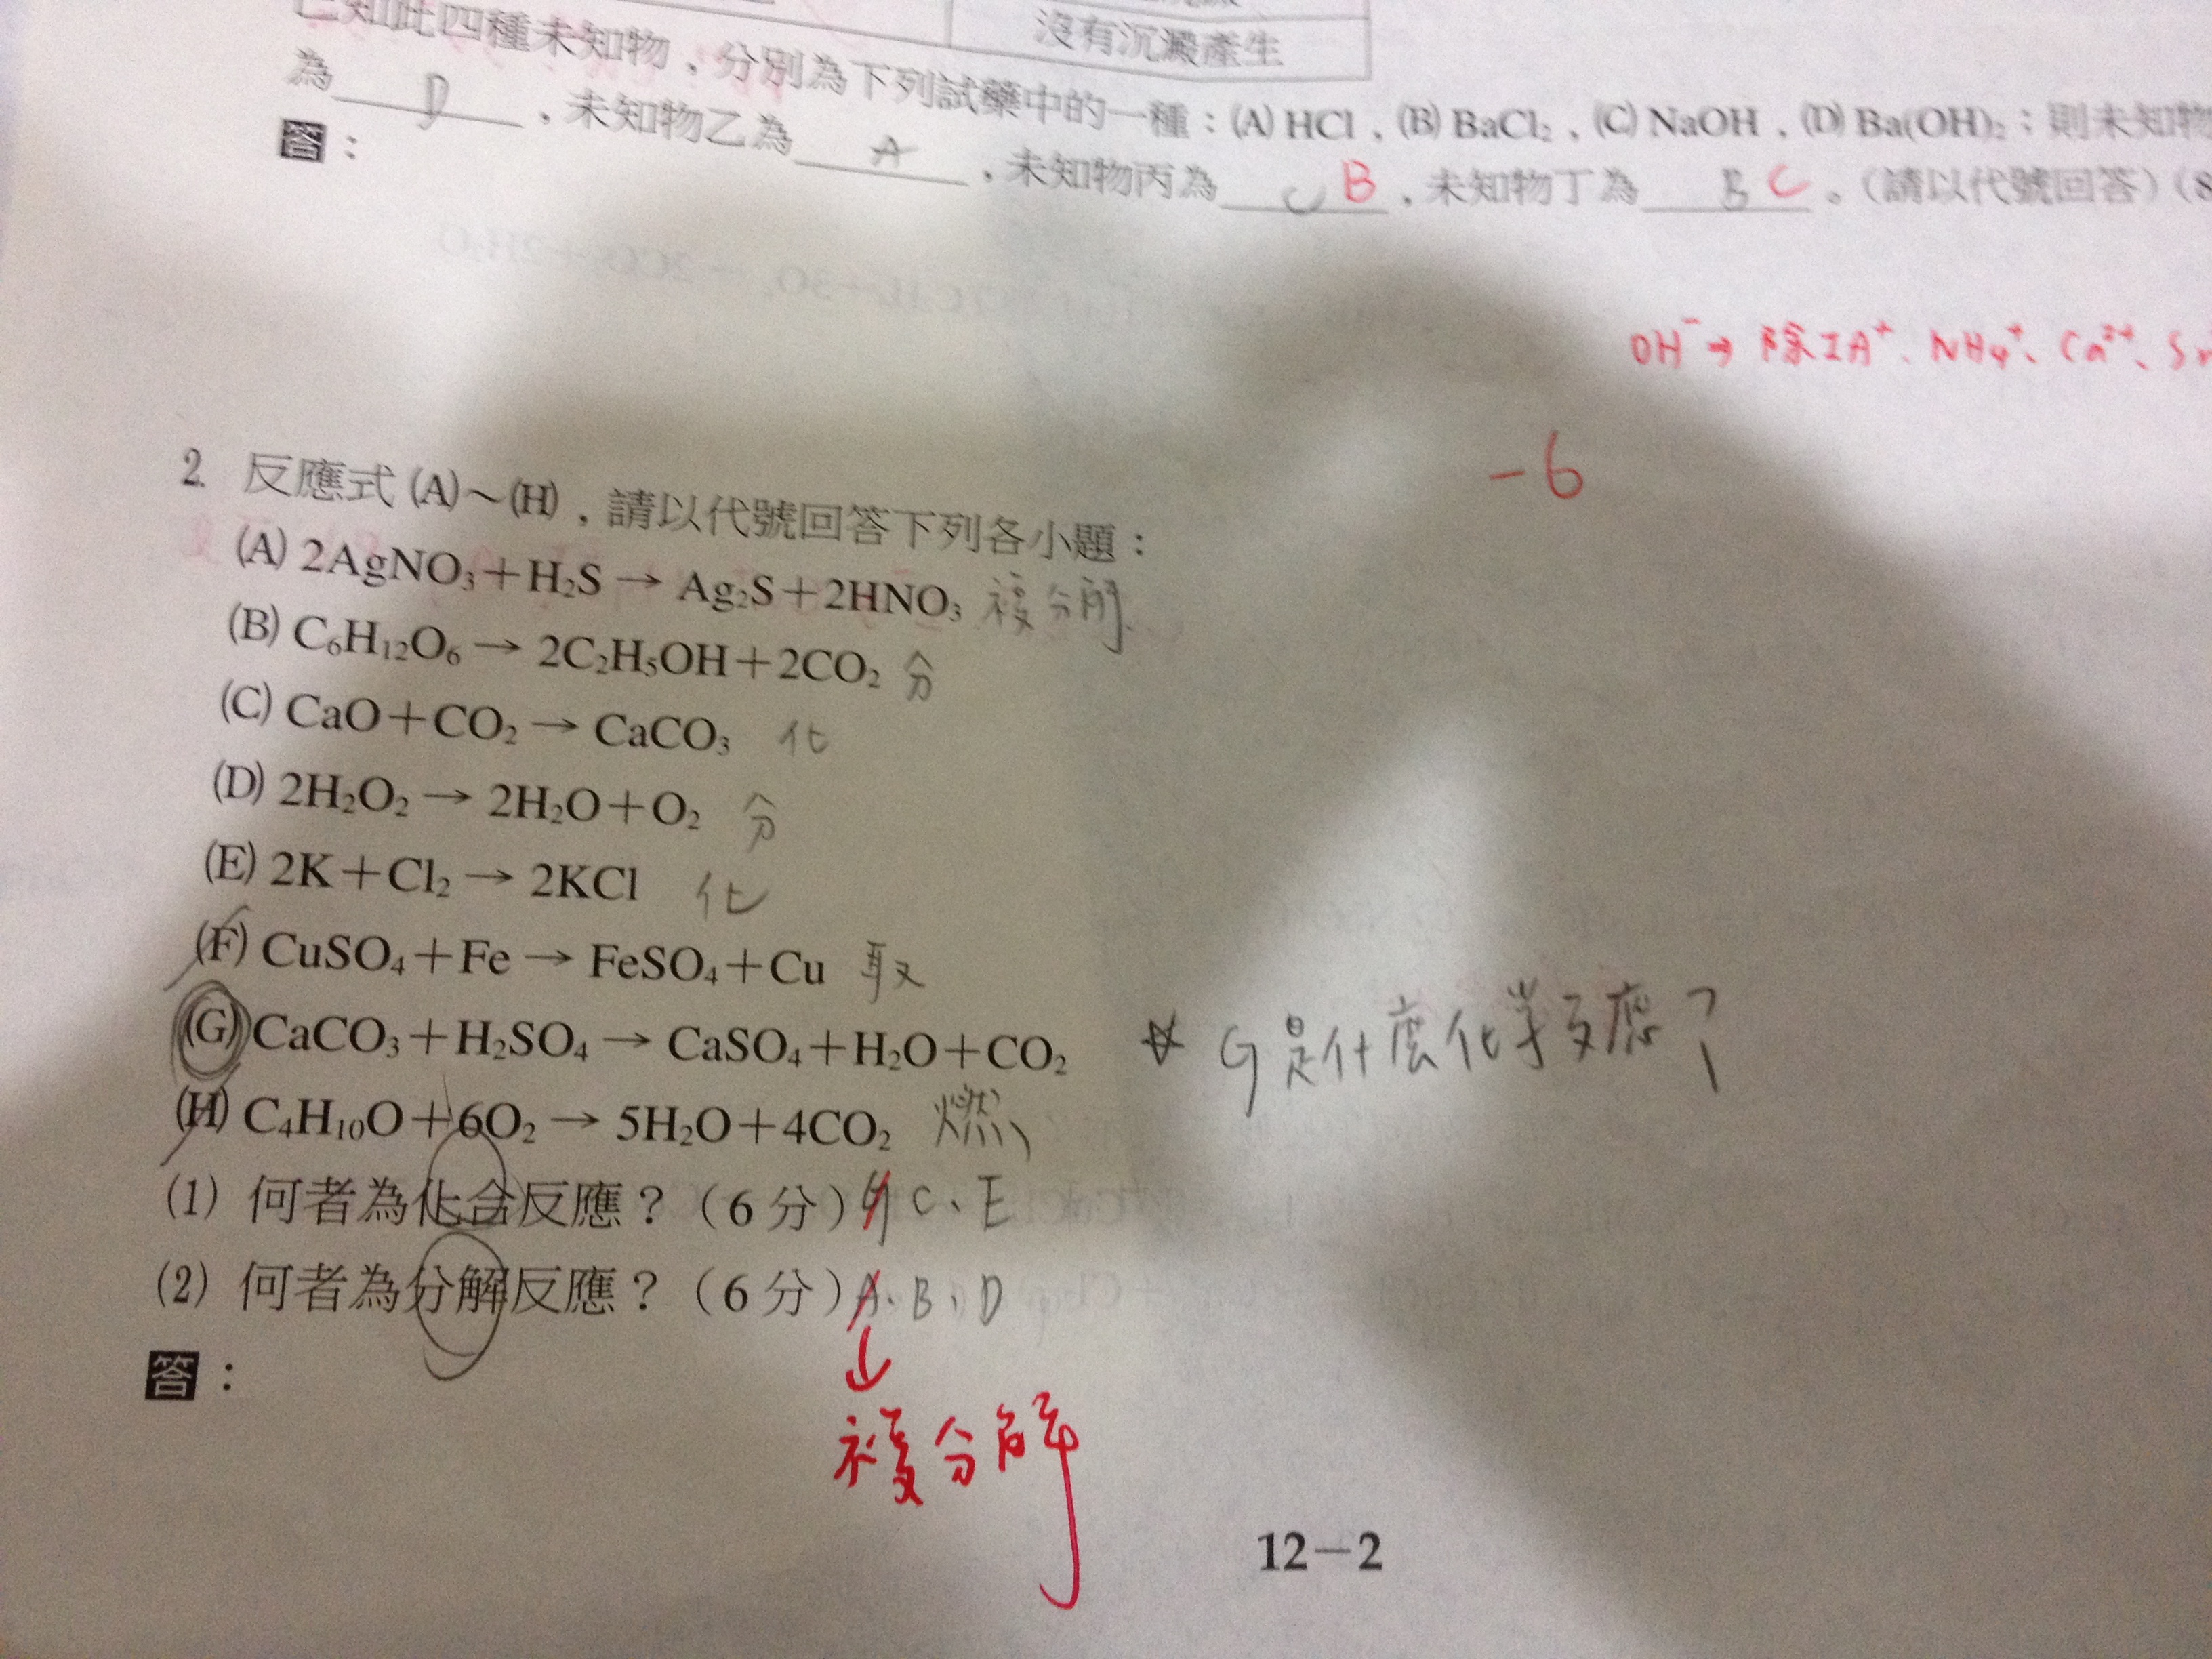 沒有沉澱產生
已知此四種未知物，分別為下列試藥中的一種：(A) HCl，(B) BaCl₂，(C) NaOH，(D) Ba(OH)₂；則未知物
為 D ，未知物乙為 A ，未知物丙為 C B ，未知物丁為 B C 。（請以代號回答）（8
答：
OH⁻ → 除IA⁺、NH₄⁺、Ca²⁺、Sr
-6
2. 反應式 (A)～(H)，請以代號回答下列各小題：
(A) 2AgNO₃＋H₂S → Ag₂S＋2HNO₃ 複分解
(B) C₆H₁₂O₆ → 2C₂H₅OH＋2CO₂ 分
(C) CaO＋CO₂ → CaCO₃ 化
(D) 2H₂O₂ → 2H₂O＋O₂ 分
(E) 2K＋Cl₂ → 2KCl 化
(F) CuSO₄＋Fe → FeSO₄＋Cu 取
(G) CaCO₃＋H₂SO₄ → CaSO₄＋H₂O＋CO₂ ☆ G是什麼化學反應？
(H) C₄H₁₀O＋6O₂ → 5H₂O＋4CO₂ 燃
(1) 何者為化合反應？（6 分） C、E
(2) 何者為分解反應？（6 分）A、B、D
↓
複分解
答：
12－2